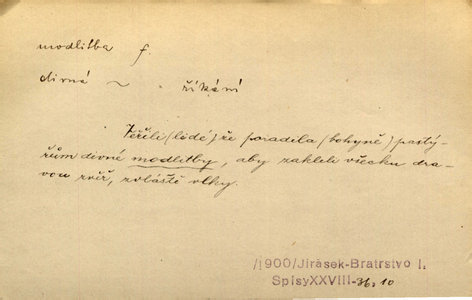 modlitba f.
divná ~ . říkání
Věřili (lidé) že poradila (bohyně) pastý-
řům divné modlitby, aby zakleli všecku dra-
vou zvěř, zvláště vlky.
/1900/Jirásek-Bratrstvo I.
SpisyXXVIII-36.10